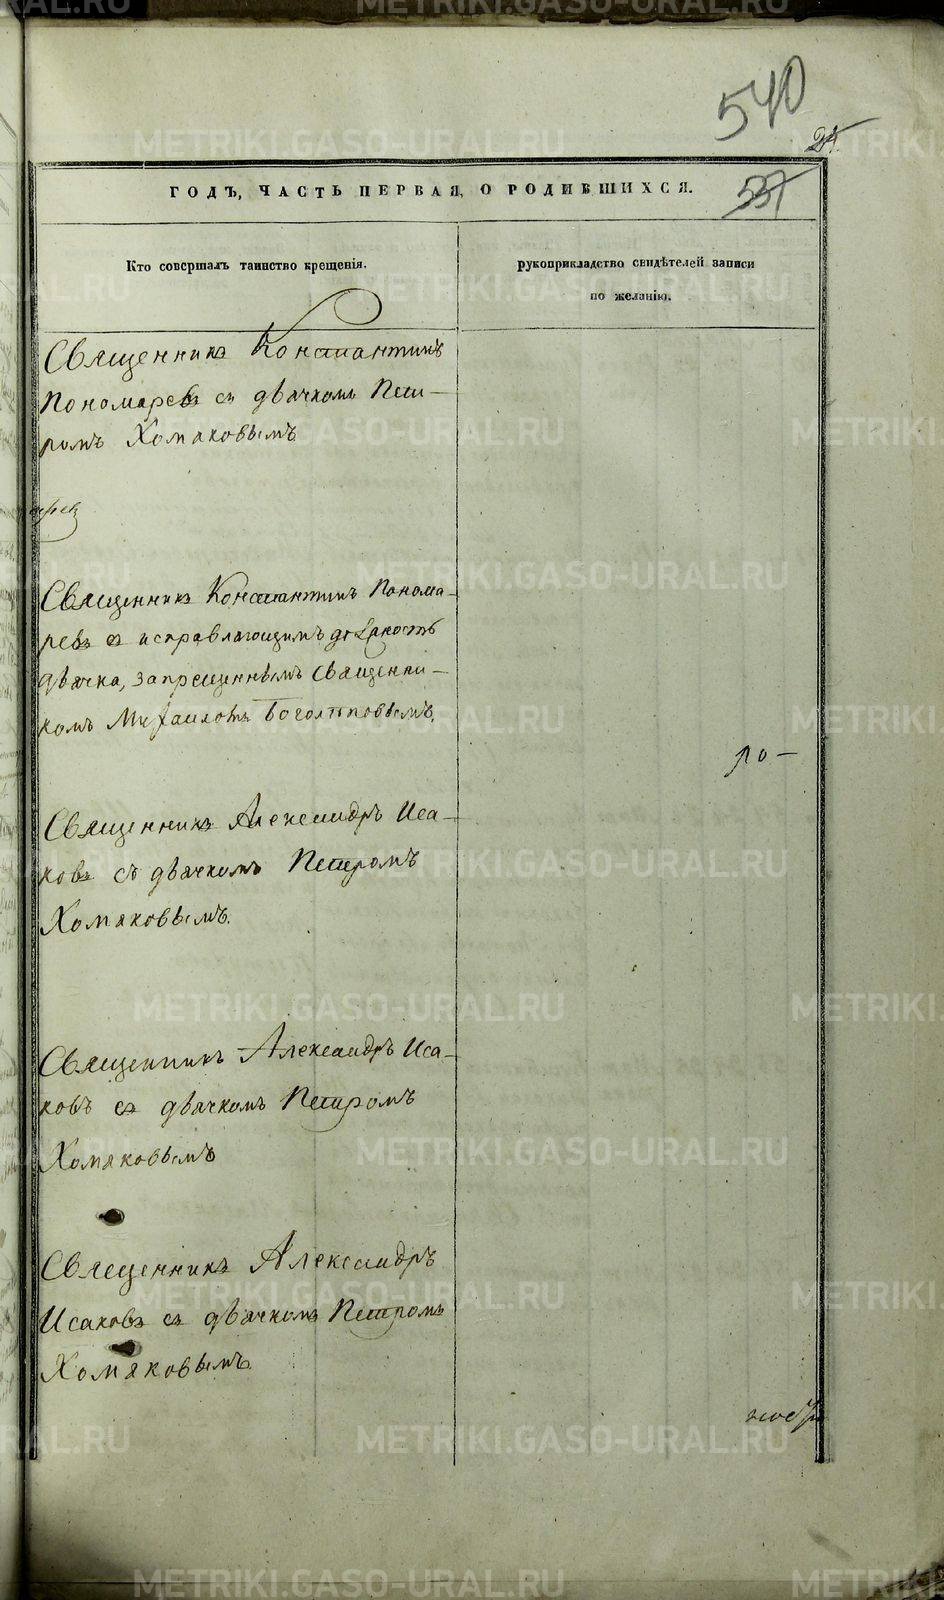 540
24
ГОДЪ, ЧАСТЬ ПЕРВАЯ, О РОДИВШИХСЯ.
537
Кто совершалъ таинство крещенія.
рукоприкладство свидѣтелей записи
по желанію.
Священникъ Константинъ
Пономаревъ съ дьячкомъ Пет-
ромъ Хомяковымъ
Священникъ Константинъ Понома-
ревъ съ исправляющимъ должность
дьячка, запрещеннымъ Священни-
комъ Михаиломъ Боголѣповымъ.
ро-
Священникъ Александръ Иса-
ковъ съ дьячкомъ Петромъ
Хомяковымъ.
Священникъ Александръ Иса-
ковъ съ дьячкомъ Петромъ
Хомяковымъ
Священникъ Александръ
Исаковъ съ дьячкомъ Петромъ
Хомяковымъ
METRIKI.GASO-URAL.RU